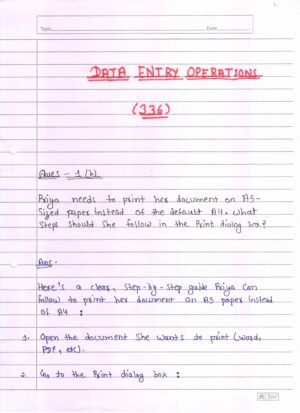 1.
Topic
Date
DATA ENTRY OPERATIONS
(336)
Ques - 1 (b)
Priya needs to print her document on A5-
Sized paper instead of the default A4. What
Steps Should She follow in the Print dialog box?
Ans -
Here's a clear, Step-by-Step guide Priya Can
follow to print her document on A5 paper instead
of A4 :
1. Open the document She wants to print (Word,
PDF, etc).
2. Go to the Print dialog box :